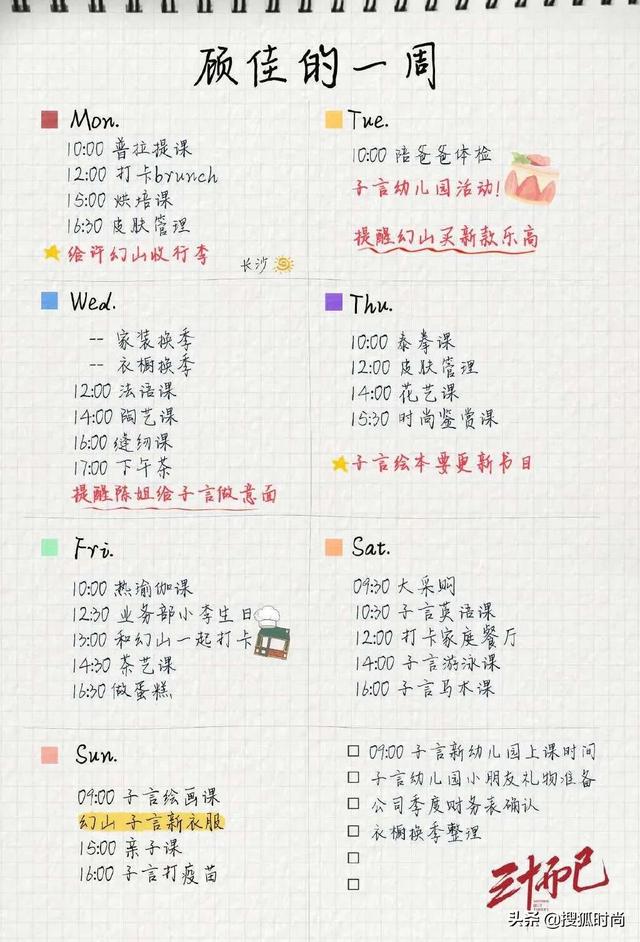 顾佳的一周
Mon.
10:00 普拉提课
12:00 打卡brunch
15:00 烘培课
16:30 皮肤管理
给许幻山收行李
长沙
Tue.
10:00 陪爸爸体检
子言幼儿园活动!
提醒幻山买新款乐高
Wed.
-- 家装换季
-- 衣橱换季
12:00 法语课
14:00 陶艺课
16:00 缝纫课
17:00 下午茶
提醒陈姐给子言做意面
Thu.
10:00 泰拳课
12:00 皮肤管理
14:00 花艺课
15:30 时尚鉴赏课
子言绘本要更新书目
Fri.
10:00 热瑜伽课
12:30 业务部小李生日
13:00 和幻山一起打卡
14:30 茶艺课
16:30 做蛋糕
Sat.
09:30 大采购
10:30 子言英语课
12:00 打卡家庭餐厅
14:00 子言游泳课
16:00 子言马术课
Sun.
09:00 子言绘画课
幻山 子言新衣服
15:00 亲子课
16:00 子言打疫苗
09:00 子言新幼儿园上课时间
子言幼儿园小朋友礼物准备
公司季度财务表确认
衣橱换季整理
三十而已
头条 @搜狐时尚